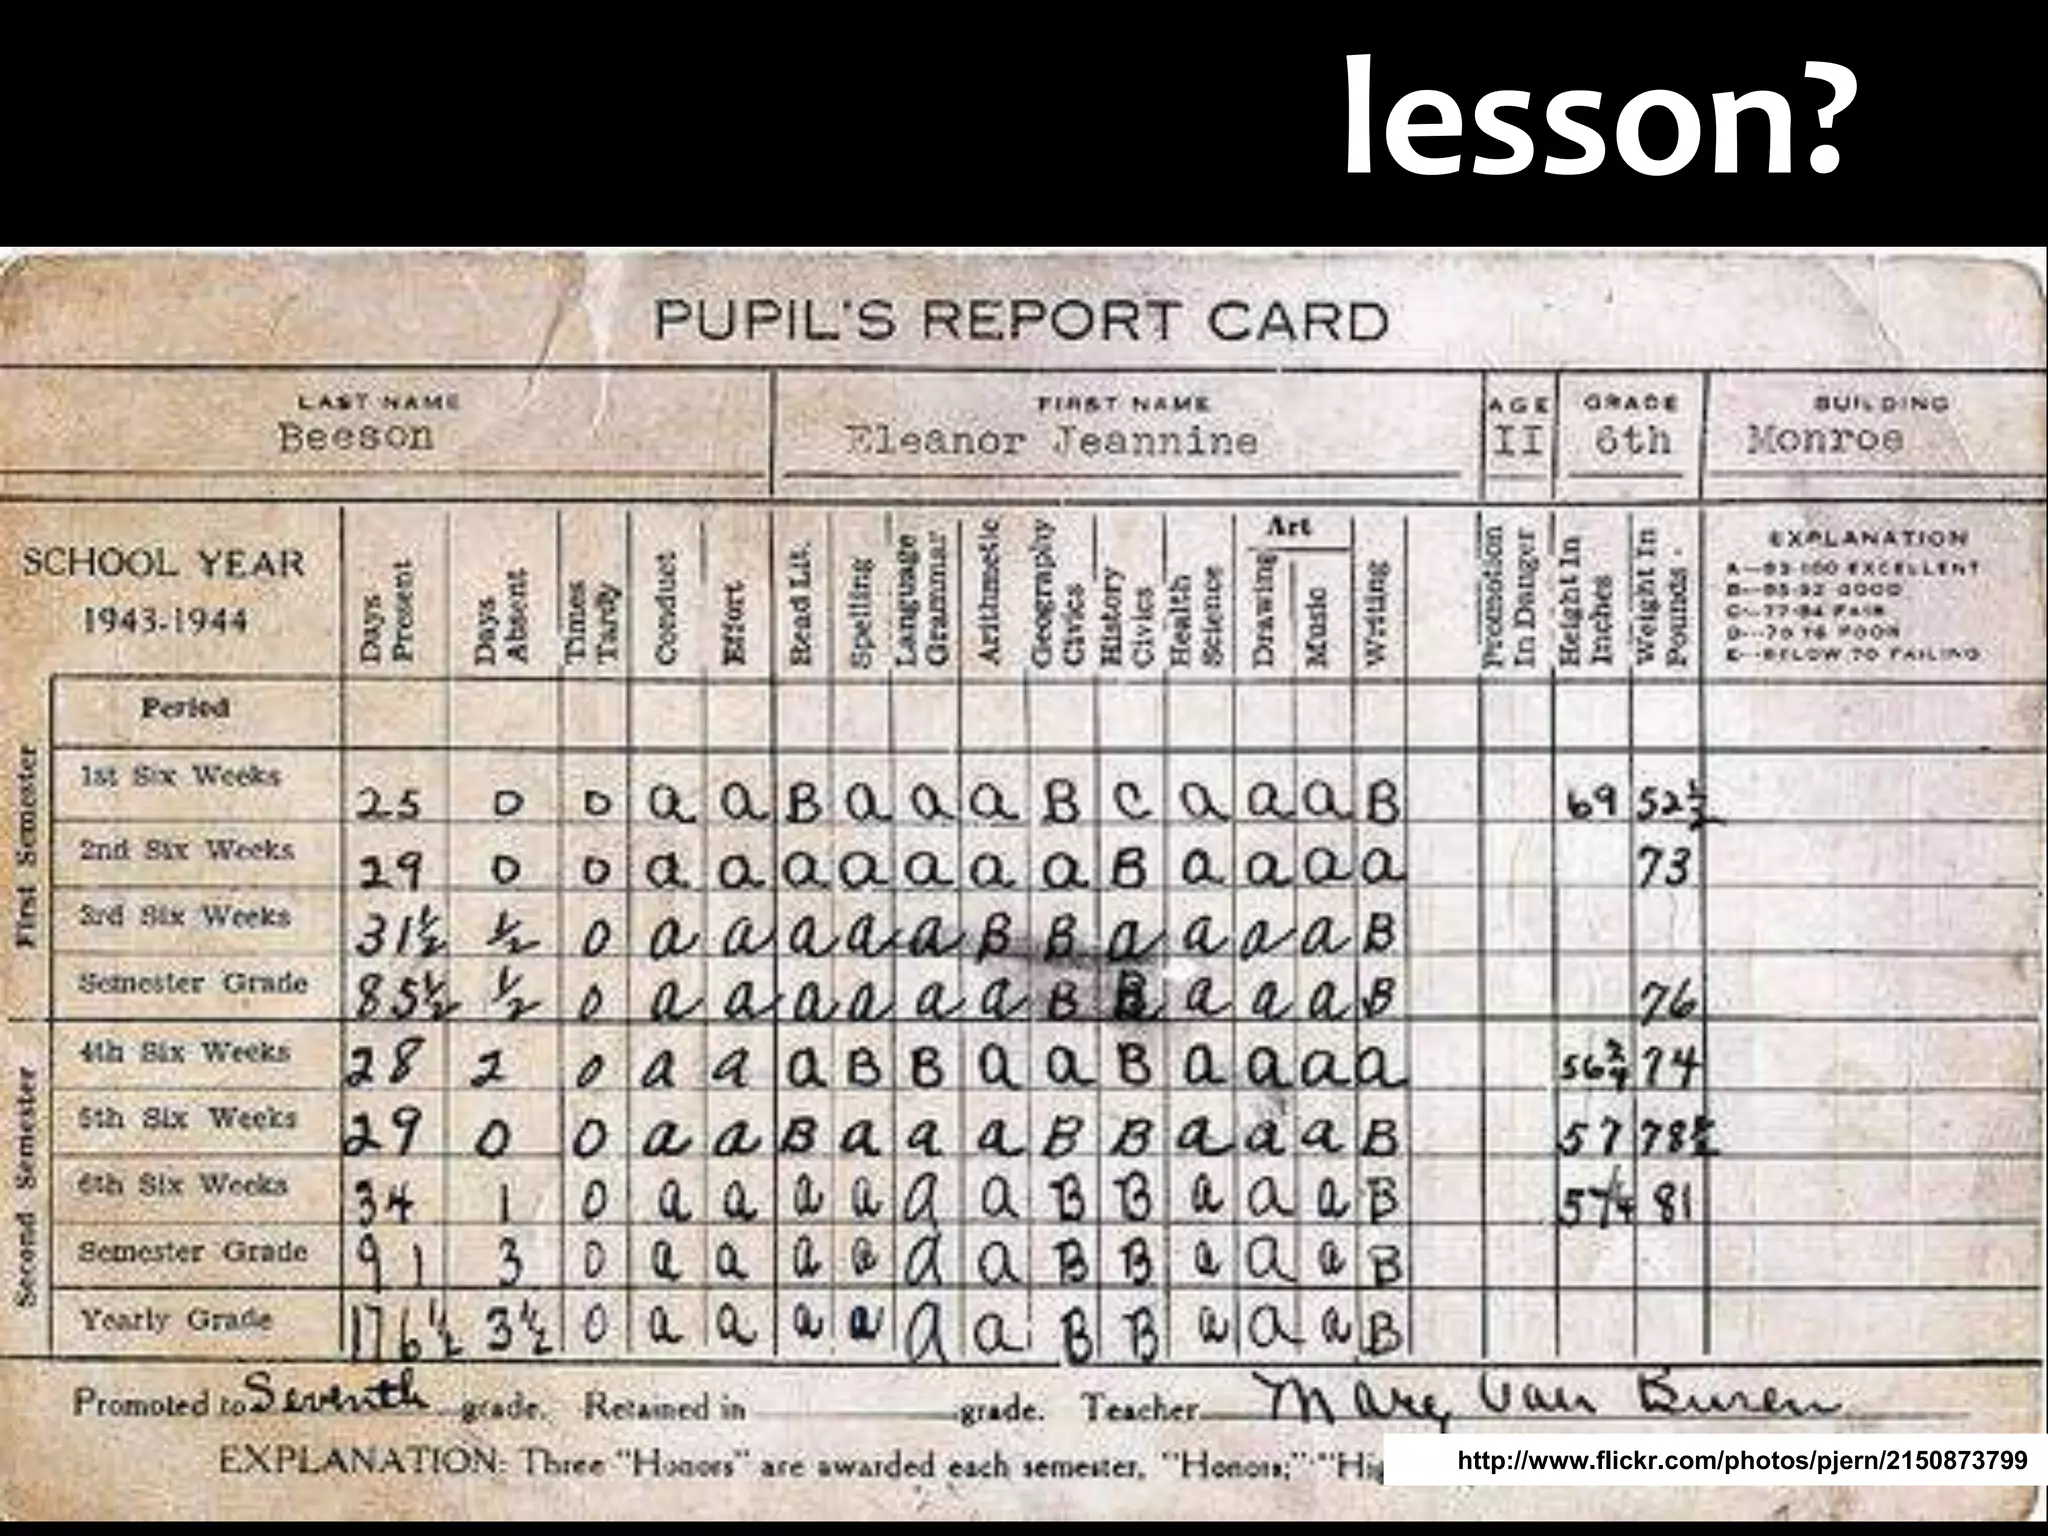 lesson?
PUPIL'S REPORT CARD
LAST NAME FIRST NAME AGE GRADE BUILDING
Beeson Eleanor Jeannine II 6th Monroe
SCHOOL YEAR 1943-1944 Days Present Days Absent Times Tardy Conduct Effort Read Lit. Spelling Language Grammar Arithmetic Geography Civics History Civics Health Science Art Drawing Music Writing Promotion In Danger Height In Inches Weight In Pounds.
EXPLANATION
A—93-100 EXCELLENT
B—85-92 GOOD
C—77-84 FAIR
D—70 76 POOR
E—BELOW 70 FAILING
Period
First Semester
1st Six Weeks 25 0 0 a a B a a a B C a a a B 69 52½
2nd Six Weeks 29 0 0 a a a a a a a B a a a a 73
3rd Six Weeks 31½ ½ 0 a a a a a B B a a a a B
Semester Grade 85½ ½ 0 a a a a a a B B a a a B 76
Second Semester
4th Six Weeks 28 2 0 a a a B B a a B a a a a 56 74
5th Six Weeks 29 0 0 a a B a a a B B a a a B 57 78½
6th Six Weeks 34 1 0 a a a a a a B B a a a B 57¼ 81
Semester Grade 91 3 0 a a a a a a B B a a a B
Yearly Grade 176½ 3½ 0 a a a a a a B B a a a B
Promoted to Seventh grade. Retained in grade. Teacher Mary Van Buren
EXPLANATION: Three "Honors" are awarded each semester, "Honors," "Hig
http://www.flickr.com/photos/pjern/2150873799